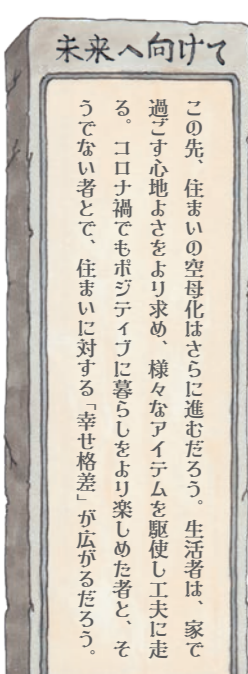 未来へ向けて
この先、住まいの空母化はさらに進むだろう。生活者は、家で
過ごす心地よさをより求め、様々なアイテムを駆使し工夫に走
る。コロナ禍でもポジティブに暮らしをより楽しめた者と、そ
うでない者とで、住まいに対する「幸せ格差」が広がるだろう。